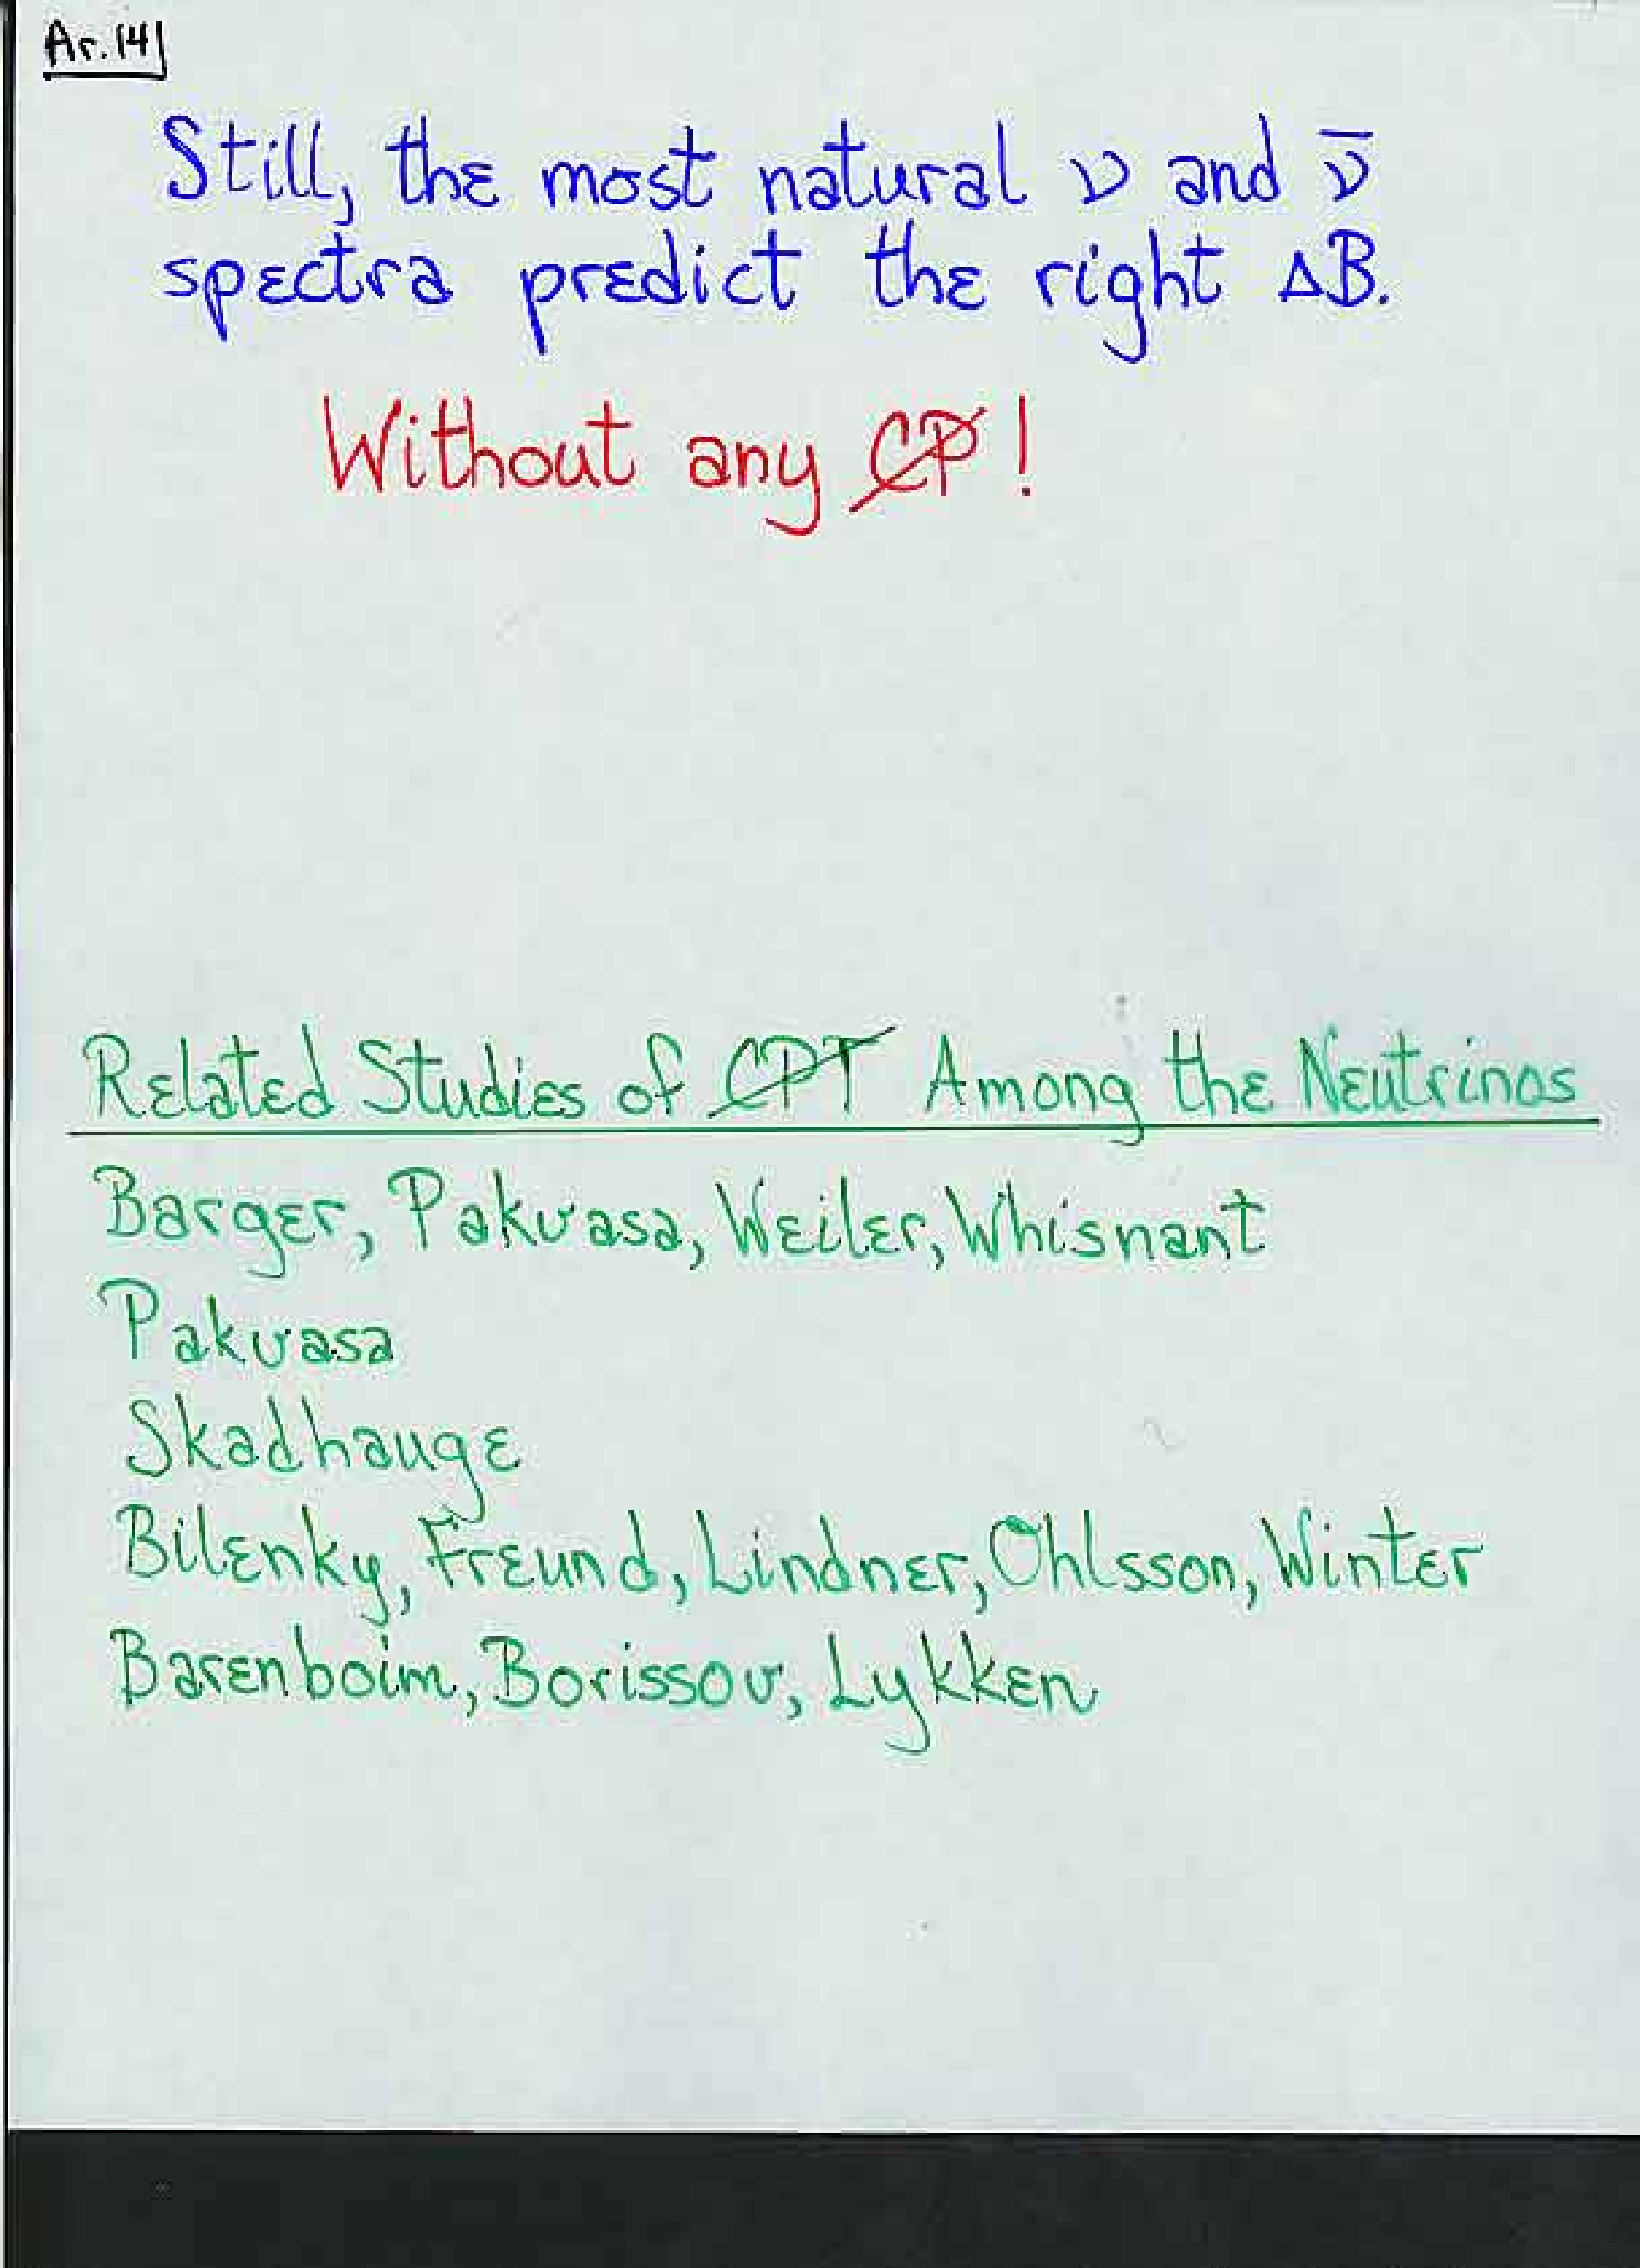 Ar.14
Still, the most natural ν and ν̅
spectra predict the right ΔB.
Without any C̸P̸!
Related Studies of C̸P̸T̸ Among the Neutrinos
Barger, Pakvasa, Weiler, Whisnant
Pakvasa
Skadhauge
Bilenky, Freund, Lindner, Ohlsson, Winter
Barenboim, Borissov, Lykken